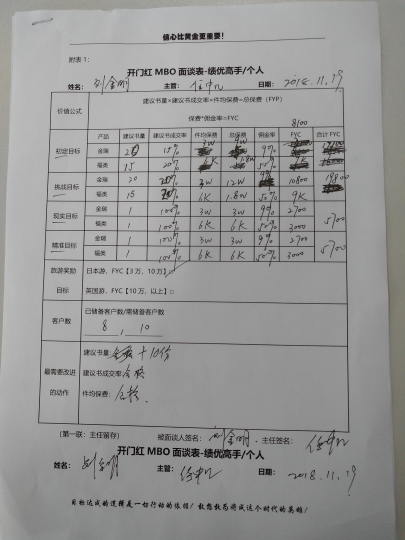 信心比黄金更重要！
附表1：
开门红 MBO 面谈表-绩优高手/个人
姓名： 主管： 日期： 2018.11.19
价值公式 建议书量×建议书成交率×件均保费=总保费（FYP）
保费*佣金率=FYC
8100
产品 建议书量 建议书成交率 件均保费 总保费 佣金率 FYC 合计 FYC
初定目标 金瑞 20 15% 3W 9%
福类 15 20% 6K 50%
挑战目标 金瑞 20 20% 3W 12W 10800 19800
福类 15 20% 6K 1.8W 50% 9K
现实目标 金瑞 1 100% 3W 3W 9% 2700 5700
福类 1 100% 6K 6K 50% 3000
精准目标 金瑞 1 100% 3W 3W 9% 2700 5700
福类 1 100% 6K 6K 50% 3000
旅游奖励 日本游，FYC【3万，10万】
目标 英国游，FYC【10万，以上】□
客户数 已储备客户数/需储备客户数
8 , 10
最需要改进的动作 建议书量： +10份
建议书成交率：
件均保费：
（第一联：主任留存） 被面谈人签名： 主任签名：
开门红 MBO 面谈表-绩优高手/个人
姓名： 主管： 日期： 2018.11.19
目标达成的逻辑是一切行动的依据！敢想敢为将成这个时代的英雄！